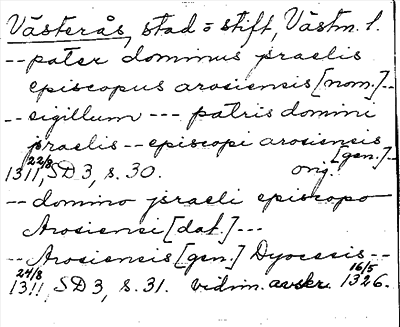 Västerås, stad o stift, Västm. l.
-- pater dominus jsraelis
episcopus arosiensis [nom.] --
-- sigillum --- patris domini
jsraelis -- episcopi arosiensis
[gen.] --
1311 22/8, SD 3, s. 30. orig.
-- domino jsraeli episcopo
Arosiensi [dat.] ---
-- Arosiensis [gen.] Dyocesis --
1311 24/8, SD 3, s. 31. vidim. avskr. 1326 16/5.